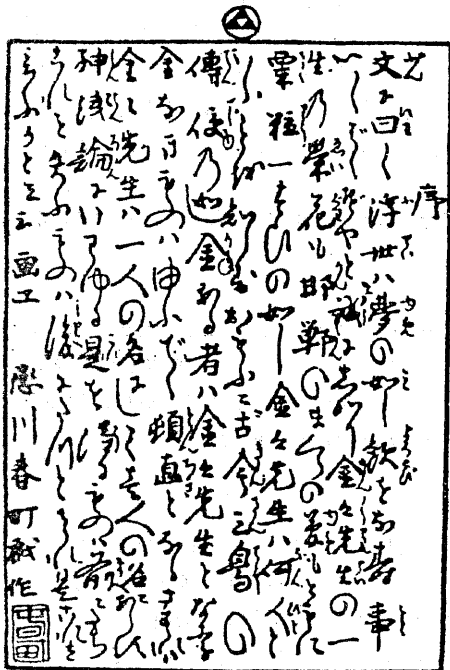 序
文に曰く浮世は夢の如し歓をなす事
いくばくぞやと誠にしかり金々先生の一
生の栄花も邯鄲のまくらの夢もともに
粟粒一すいの如し金々先生は何人と
いふことをしらずおもふに古今三鳥の
傳授の如し金ある者は金々先生となり
金なきものはゆふでく頓直となるさすれば
金々先生は一人の名にして壱人の名にあらず
神銭論にいわゆる是を得るものは前にたち
これを失ふものは後にたつと
画工 戀川春町戯作